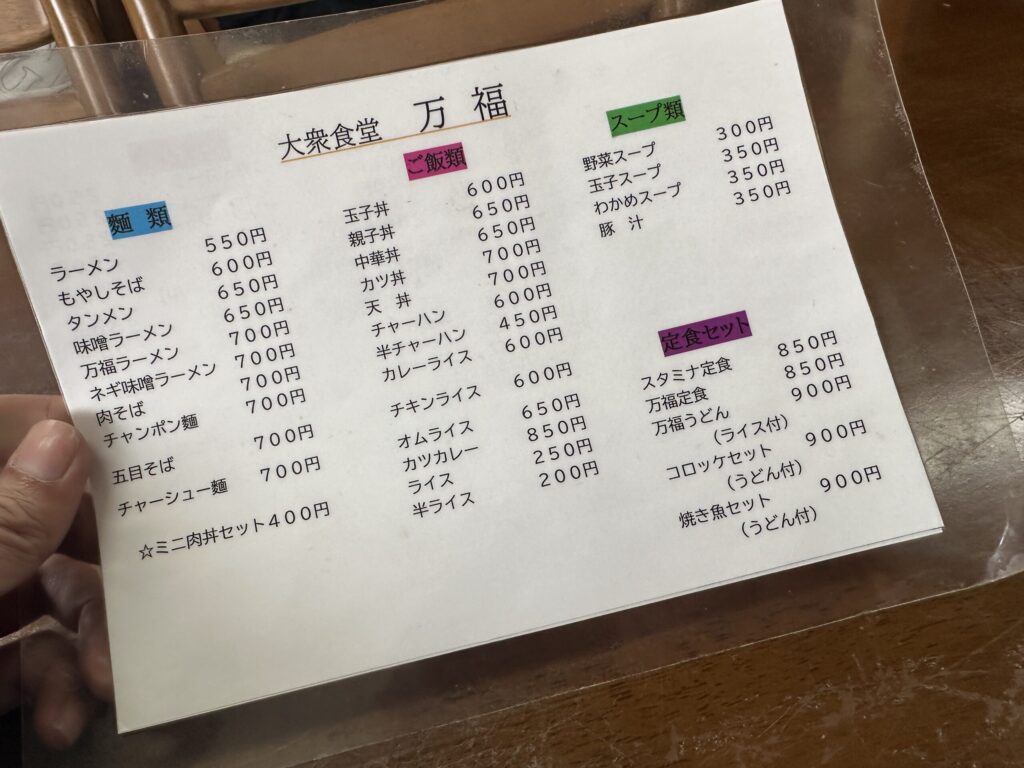 大衆食堂 万福
麺 類
ラーメン 550円
もやしそば 600円
タンメン 650円
味噌ラーメン 650円
万福ラーメン 700円
ネギ味噌ラーメン 700円
肉そば 700円
チャンポン麺 700円
五目そば 700円
チャーシュー麺 700円
☆ミニ肉丼セット400円
ご飯類
玉子丼 600円
親子丼 650円
中華丼 650円
カツ丼 700円
天 丼 700円
チャーハン 600円
半チャーハン 450円
カレーライス 600円
チキンライス 600円
オムライス 650円
カツカレー 850円
ライス 250円
半ライス 200円
スープ類
野菜スープ 300円
玉子スープ 350円
わかめスープ 350円
豚 汁 350円
定食セット
スタミナ定食 850円
万福定食 850円
万福うどん 900円
(ライス付)
コロッケセット 900円
(うどん付)
焼き魚セット 900円
(うどん付)